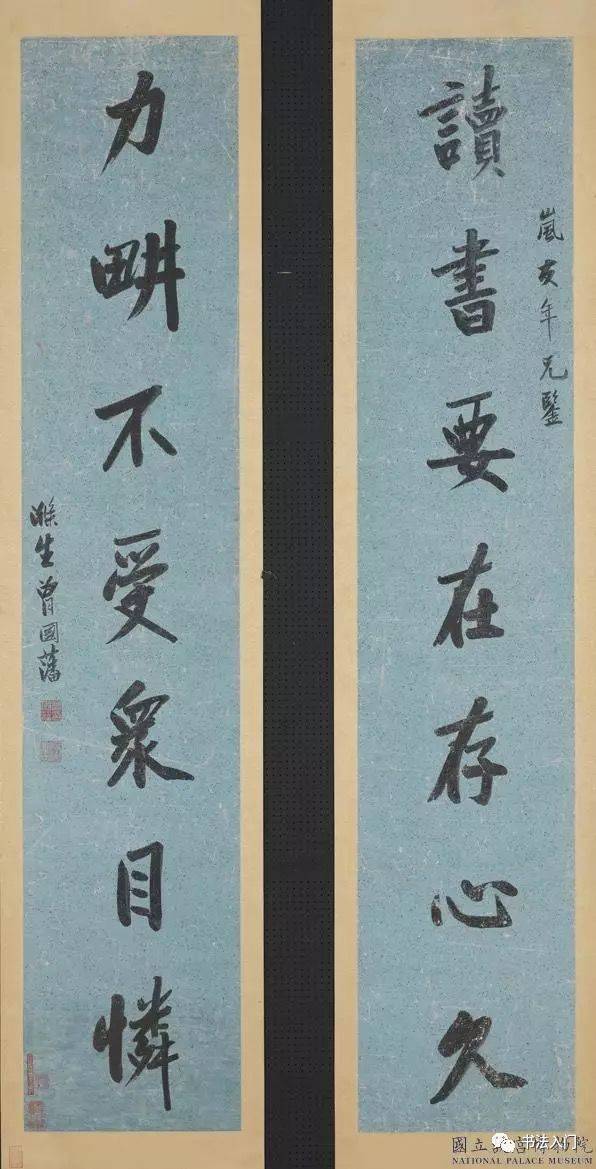 嵐友年兄鑒
讀書要在存心久
力畊不受衆目憐
滌生曾國藩
國立故宮博物院
NATIONAL PALACE MUSEUM
书法入门